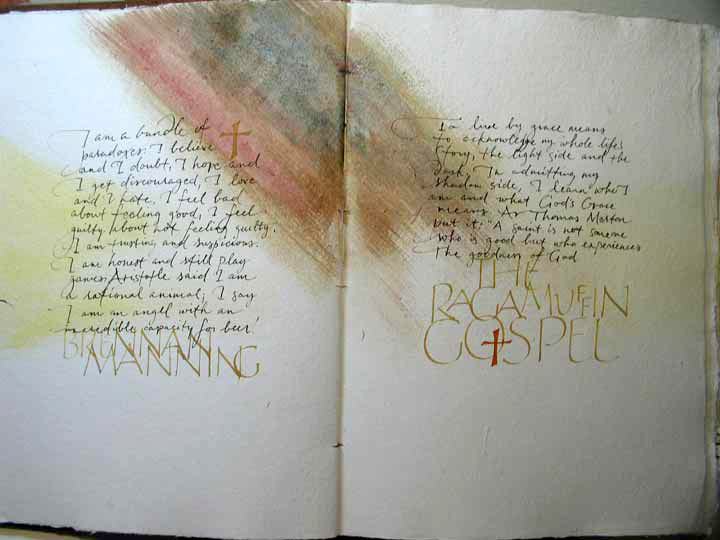 I am a bundle of
paradoxes. I believe
and I doubt, I hope and
I get discouraged, I love
and I hate, I feel bad
about feeling good, I feel
guilty about not feeling guilty.
I am trusting and suspicious.
I am honest and still play
games. Aristotle said I am
a rational animal; I say
I am an angel with an
incredible capacity for beer!
BRENNAN
MANNING
To live by grace means
to acknowledge my whole life's
story, the light side and the
dark. In admitting my
shadow side, I learn who I
am and what God's Grace
means. As Thomas Merton
put it: "A saint is not someone
who is good but who experiences
the goodness of God
THE
RAGAMUFFIN
GOSPEL